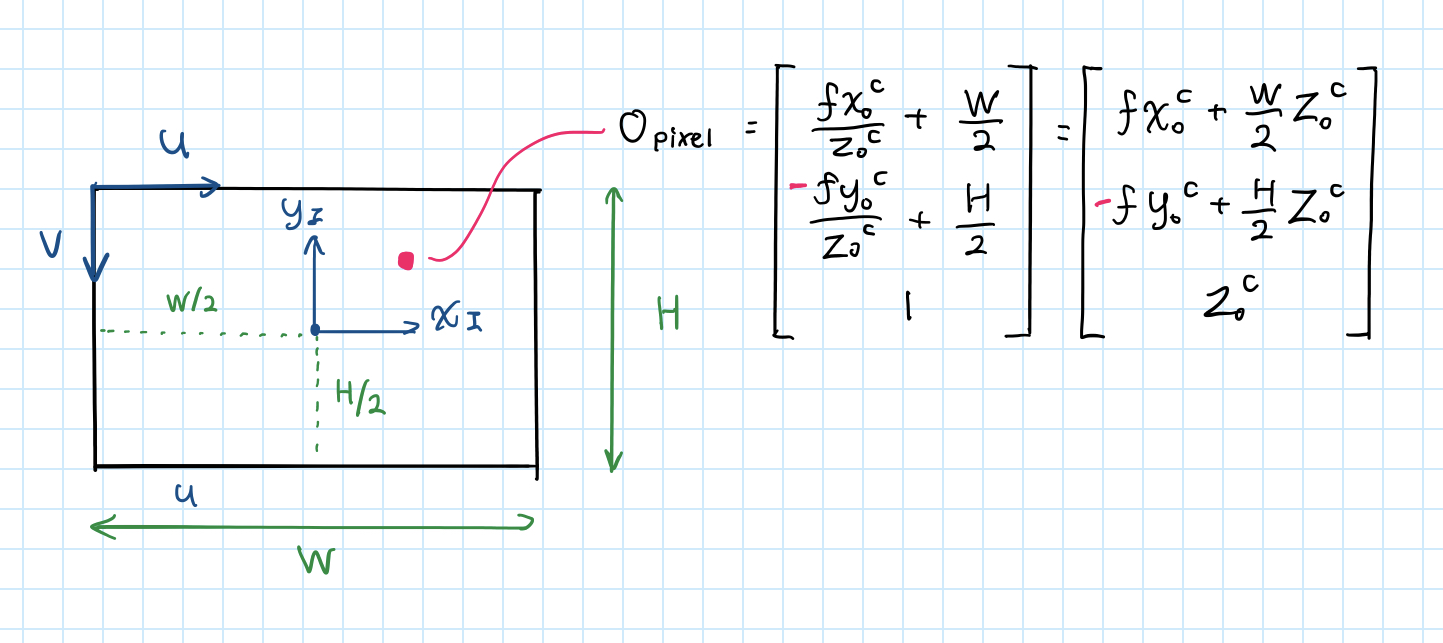 u
v
y_I
x_I
W/2
H/2
u
W
H
O_pixel = [ fx_o^c / z_o^c + W/2 ; -fy_o^c / z_o^c + H/2 ; 1 ] = [ fx_o^c + W/2 z_o^c ; -fy_o^c + H/2 z_o^c ; z_o^c ]